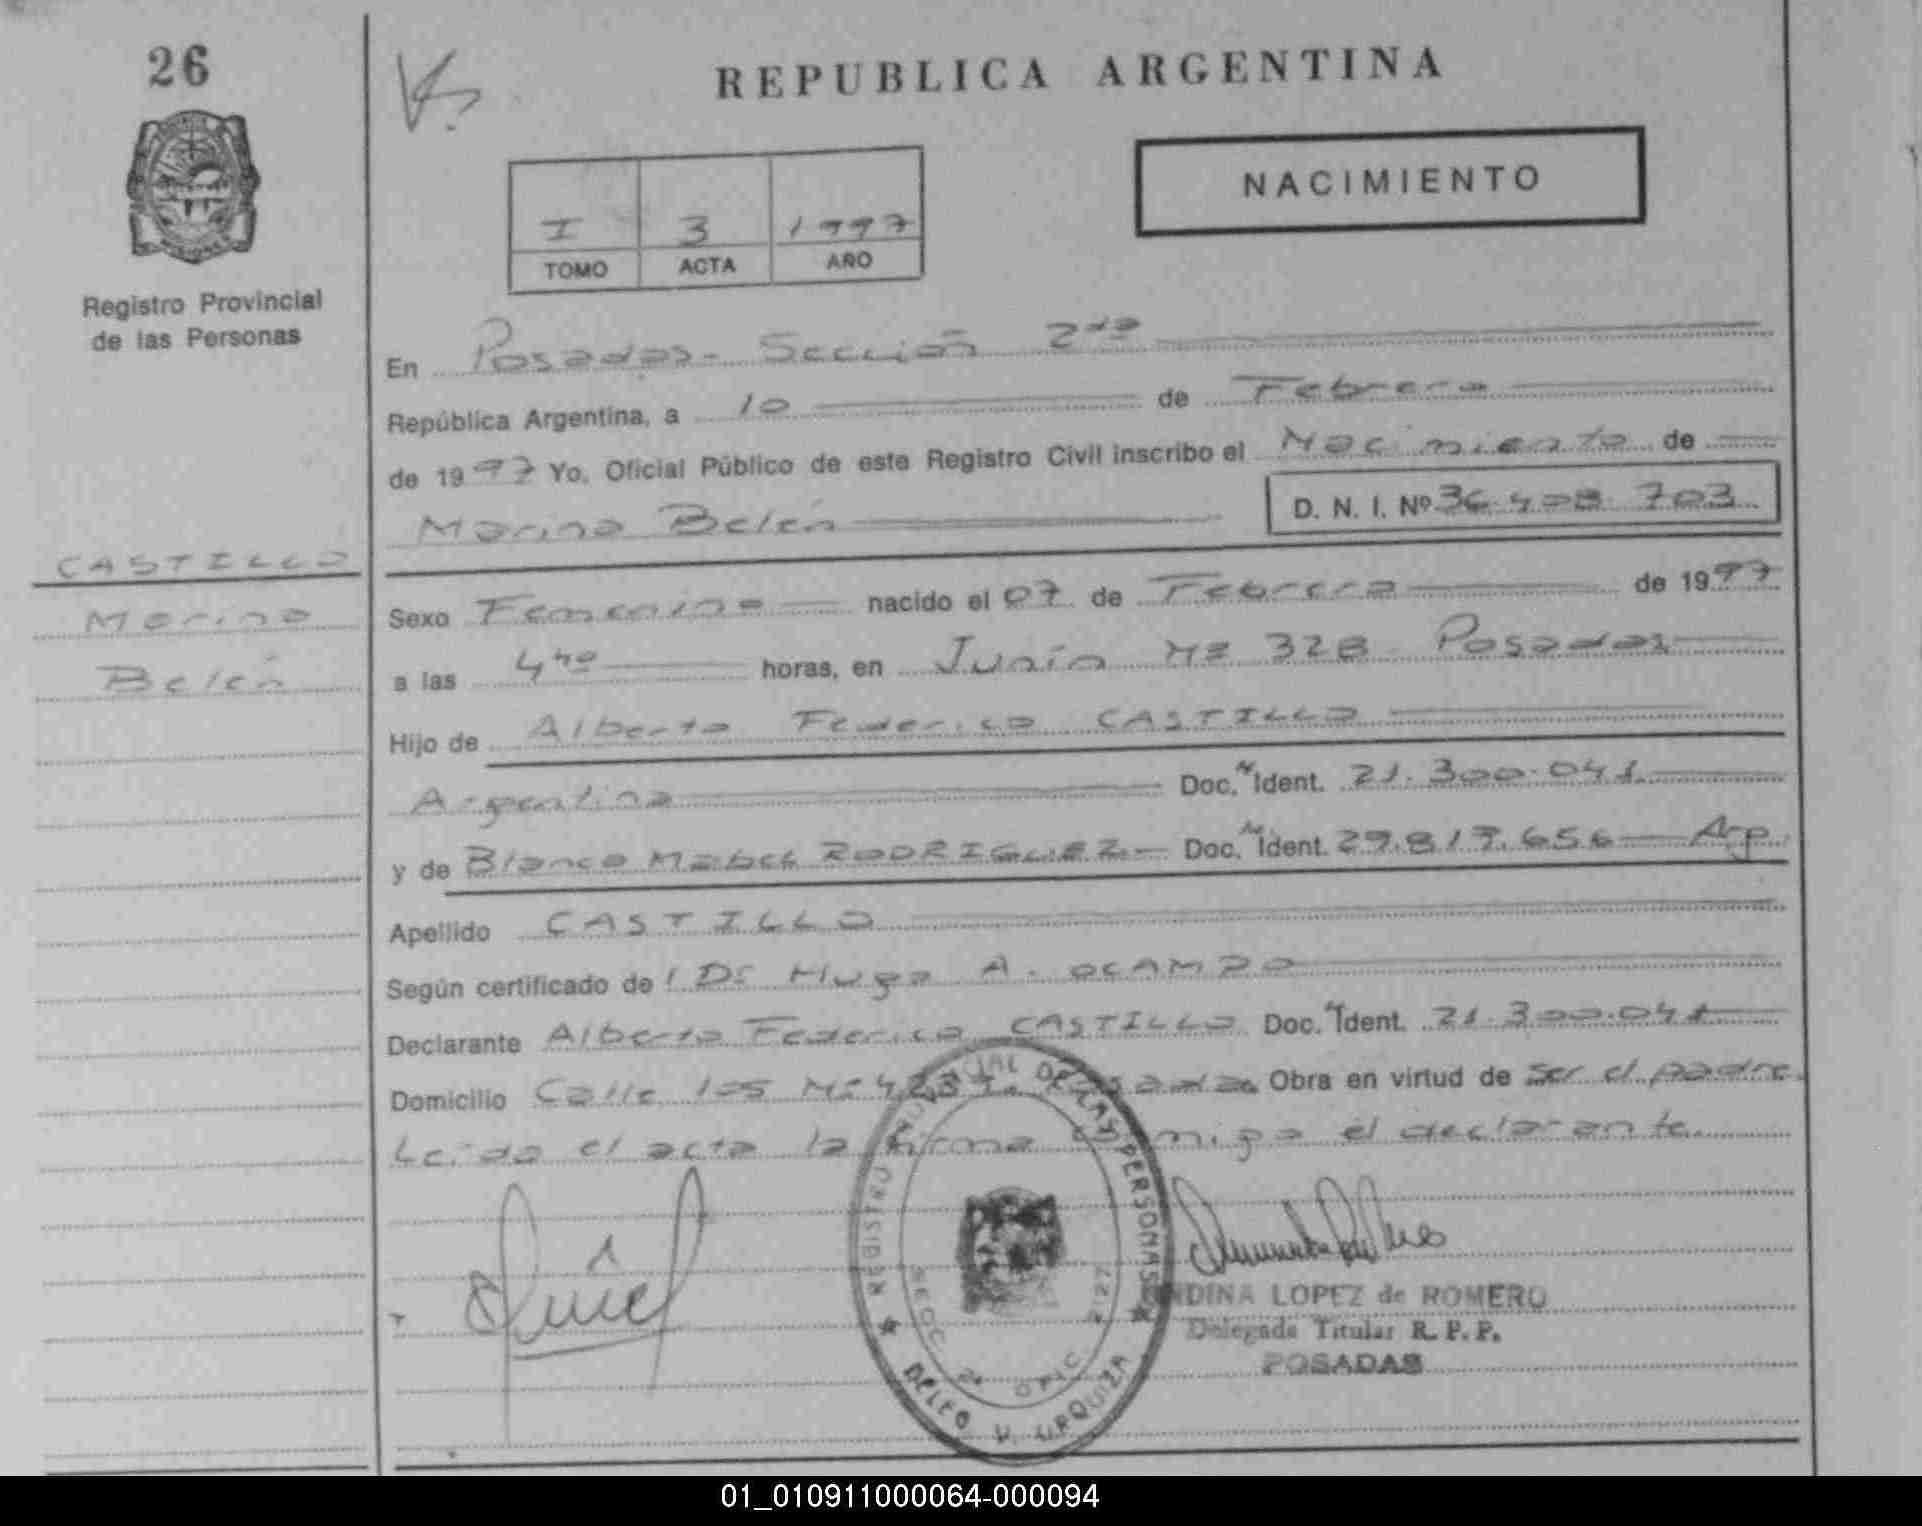 26
REPUBLICA ARGENTINA
NACIMIENTO
I 3 1997
TOMO ACTA AÑO
Registro Provincial
de las Personas
En Posadas - Sección 2da
República Argentina, a 10 de Febrero
de 1997 Yo, Oficial Público de este Registro Civil inscribo el Nacimiento de
Marina Belén D. N. I. Nº 36.408.703
CASTILLO
Marina
Belén
Sexo Femenino nacido el 07 de Febrero de 1997
a las 4 horas, en Junín Nº 328 Posadas
Hijo de Alberto Federico CASTILLO
Argentino Doc. N Ident. 21.300.041
y de Blanca Mabel RODRIGUEZ Doc. N Ident. 29.817.656 Arg.
Apellido CASTILLO
Según certificado de l Dr Hugo A. OCAMPO
Declarante Alberto Federico CASTILLO Doc. N Ident. 21.300.041
Domicilio Calle 105 Nº Posadas Obra en virtud de ser el padre.
Leída el acta la firma conmigo el declarante.
REGISTRO PROVINCIAL DE LAS PERSONAS
SECC. 2ª OFIC. 2127
DELEG. V. URQUIZA
NDINA LOPEZ de ROMERO
Delegada Titular R. P. P.
POSADAS
01_010911000064-000094